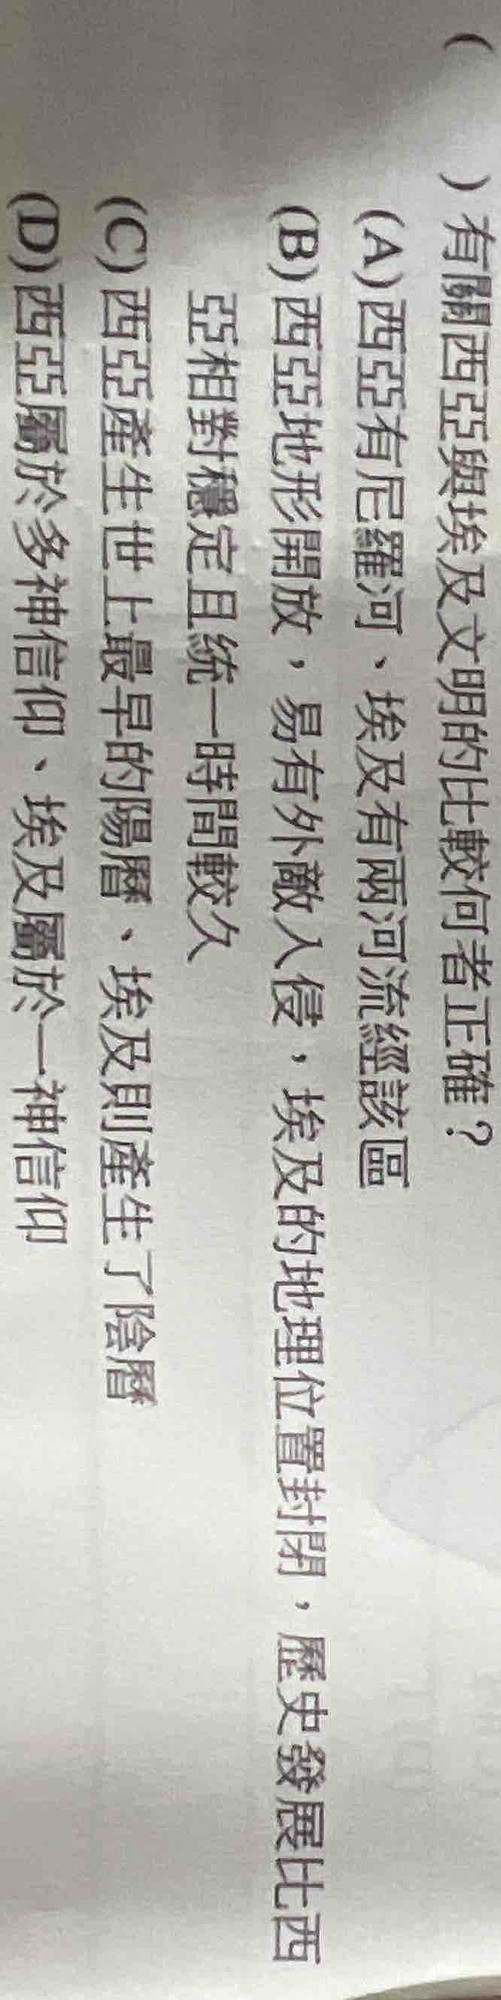 (　　)有關西亞與埃及文明的比較何者正確？
(A)西亞有尼羅河、埃及有兩河流經該區
(B)西亞地形開放，易有外敵入侵，埃及的地理位置封閉，歷史發展比西
亞相對穩定且統一時間較久
(C)西亞產生世上最早的陽曆、埃及則產生了陰曆
(D)西亞屬於多神信仰、埃及屬於一神信仰